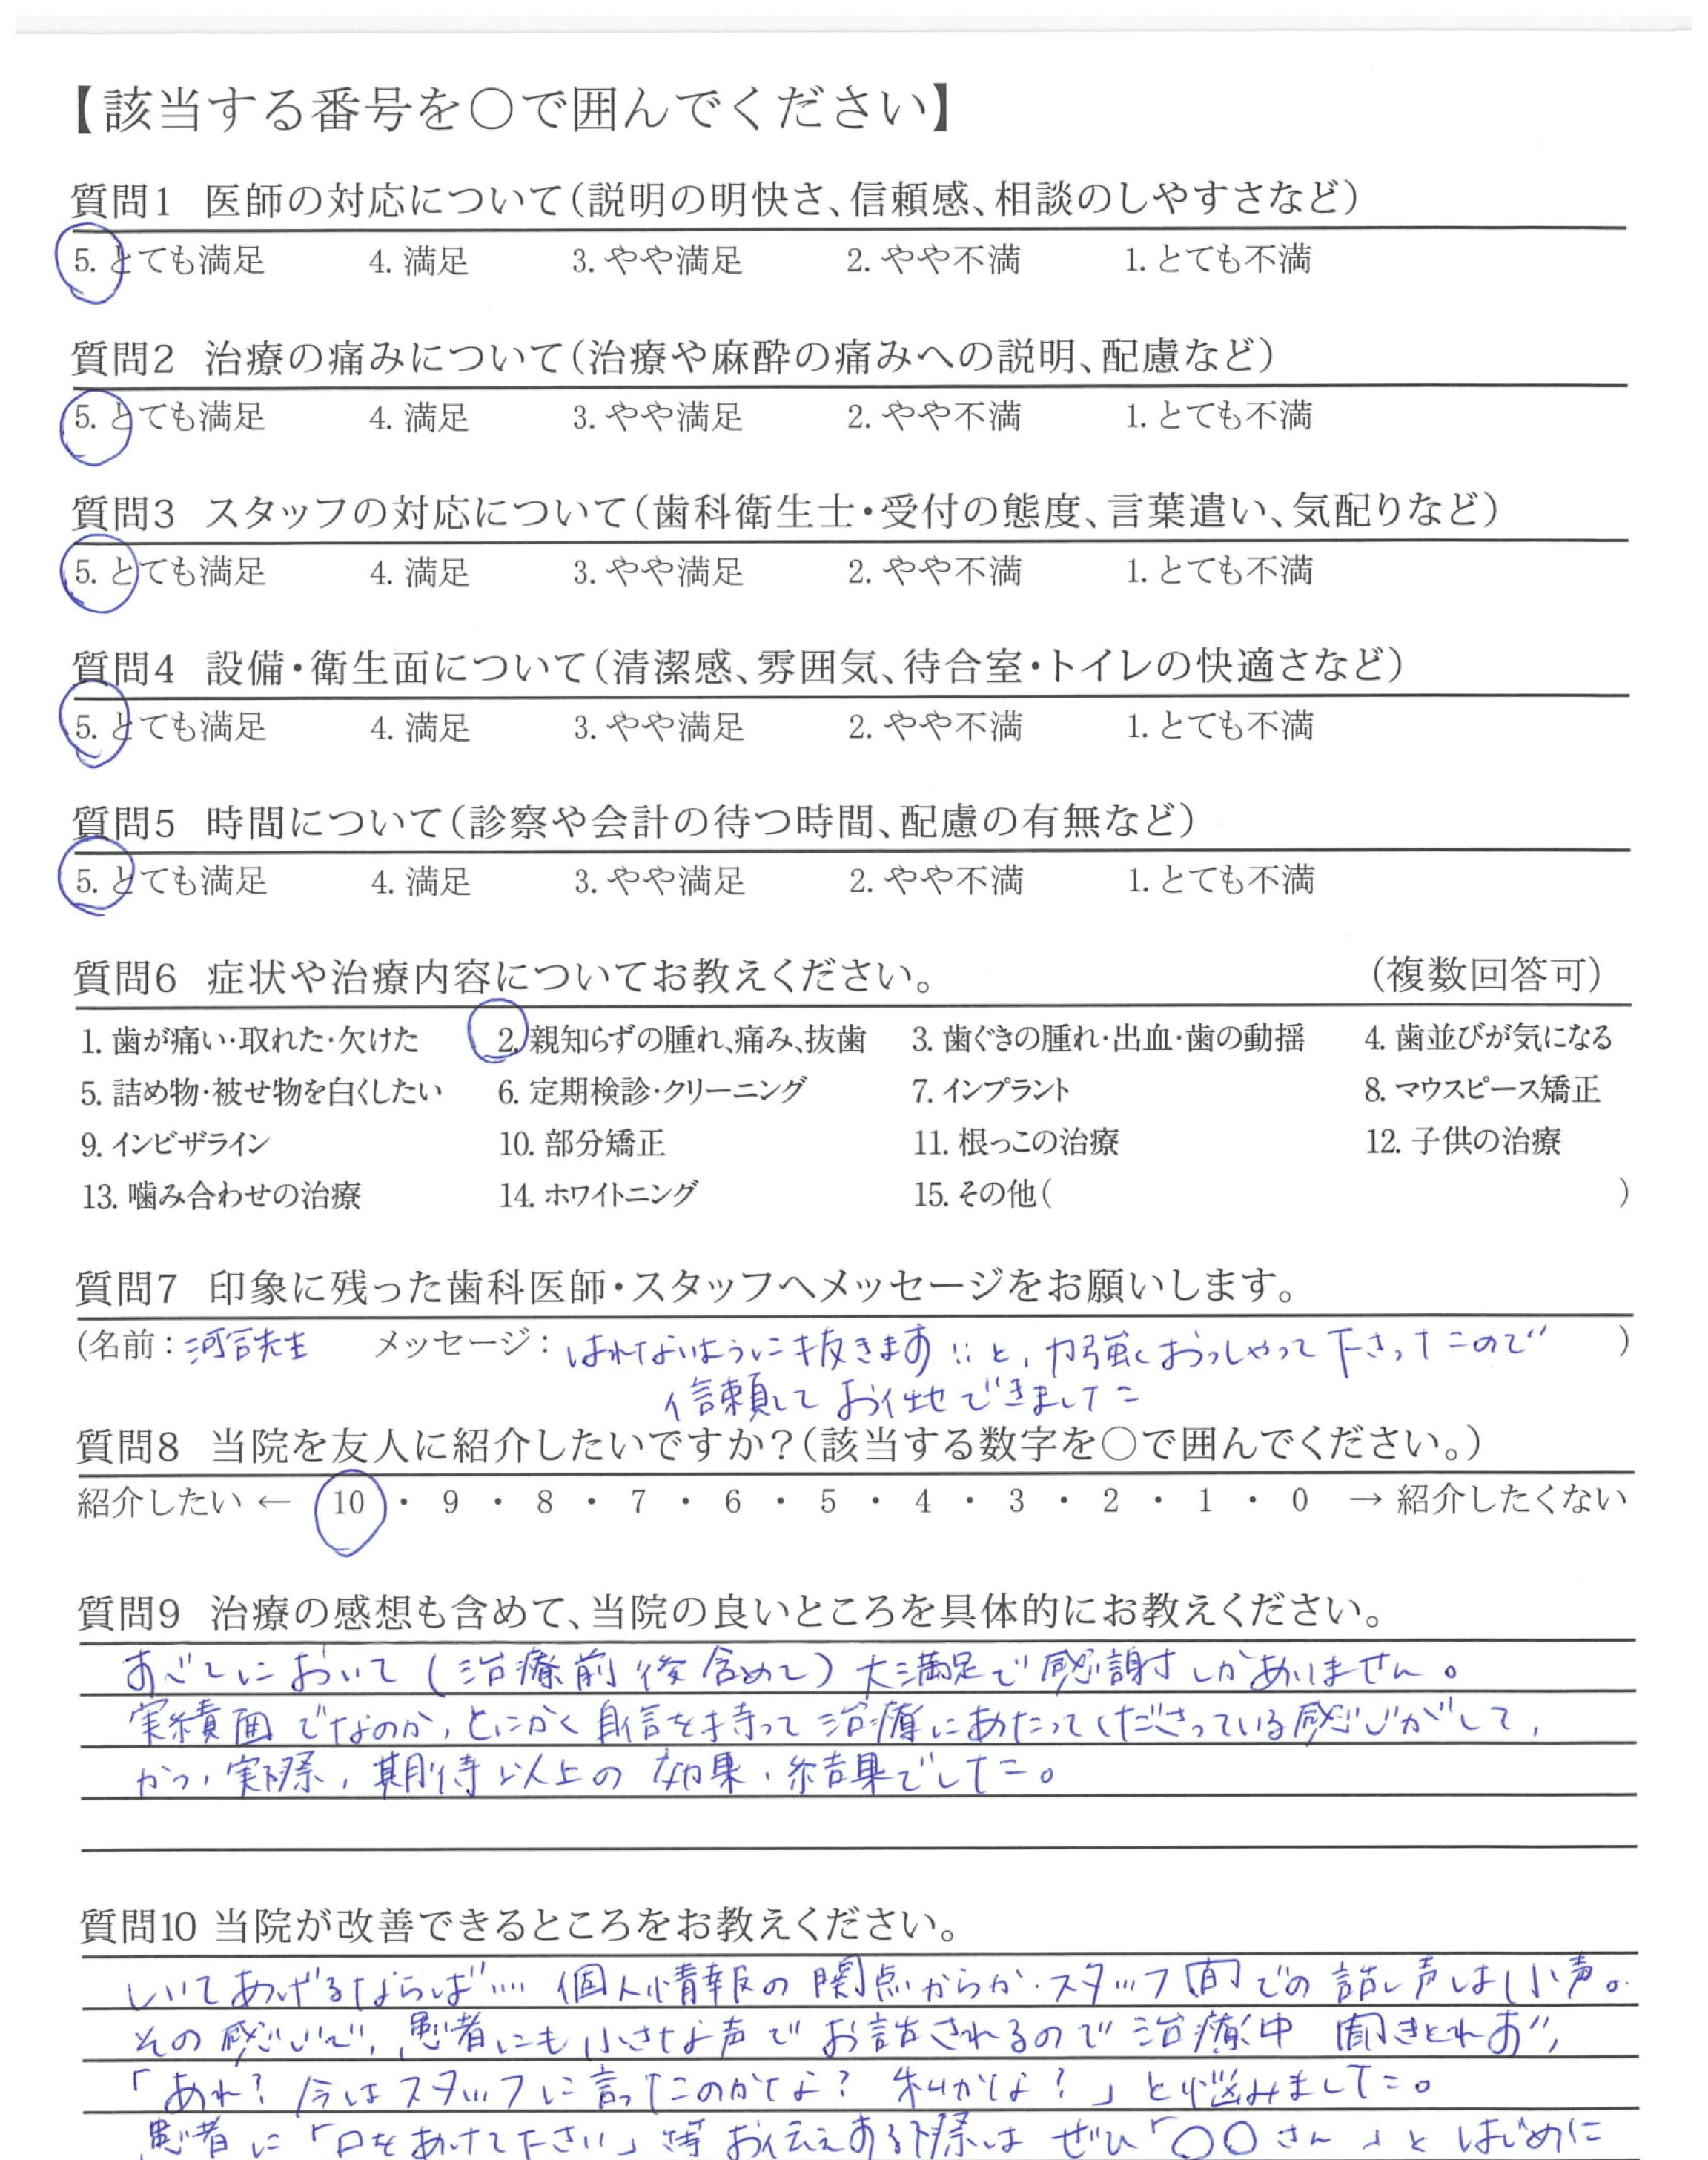 【該当する番号を○で囲んでください】
質問1 医師の対応について(説明の明快さ、信頼感、相談のしやすさなど)
5. とても満足 4. 満足 3. やや満足 2. やや不満 1. とても不満
質問2 治療の痛みについて(治療や麻酔の痛みへの説明、配慮など)
5. とても満足 4. 満足 3. やや満足 2. やや不満 1. とても不満
質問3 スタッフの対応について(歯科衛生士・受付の態度、言葉遣い、気配りなど)
5. とても満足 4. 満足 3. やや満足 2. やや不満 1. とても不満
質問4 設備・衛生面について(清潔感、雰囲気、待合室・トイレの快適さなど)
5. とても満足 4. 満足 3. やや満足 2. やや不満 1. とても不満
質問5 時間について(診察や会計の待つ時間、配慮の有無など)
5. とても満足 4. 満足 3. やや満足 2. やや不満 1. とても不満
質問6 症状や治療内容についてお教えください。 (複数回答可)
1. 歯が痛い・取れた・欠けた 2. 親知らずの腫れ、痛み、抜歯 3. 歯ぐきの腫れ・出血・歯の動揺 4. 歯並びが気になる
5. 詰め物・被せ物を白くしたい 6. 定期検診・クリーニング 7. インプラント 8. マウスピース矯正
9. インビザライン 10. 部分矯正 11. 根っこの治療 12. 子供の治療
13. 噛み合わせの治療 14. ホワイトニング 15. その他( )
質問7 印象に残った歯科医師・スタッフへメッセージをお願いします。
(名前: 先生 メッセージ: はれないように抜きます!!と、力強くおっしゃって下さったので )
信頼して お任せできました
質問8 当院を友人に紹介したいですか?(該当する数字を○で囲んでください。)
紹介したい ← 10 ・ 9 ・ 8 ・ 7 ・ 6 ・ 5 ・ 4 ・ 3 ・ 2 ・ 1 ・ 0 → 紹介したくない
質問9 治療の感想も含めて、当院の良いところを具体的にお教えください。
すべてにおいて (治療前後含めて) 大満足で感謝しかありません。
実績面でなのか、とにかく自信を持って治療にあたってくださっている感じがして、
かつ、実際、期待以上の効果・結果でした。
質問10 当院が改善できるところをお教えください。
しいてあげるならば…. 個人情報の関点からか、スタッフ間での話し声は小声。
その感じで、患者にも小さな声でお話されるので治療中 聞きとれず、
「あれ? 今はスタッフに言ったのかな? 私かな?」と悩みました。
患者に「口をあけて下さい」等お伝えする際は ぜひ「○○さん」と はじめに